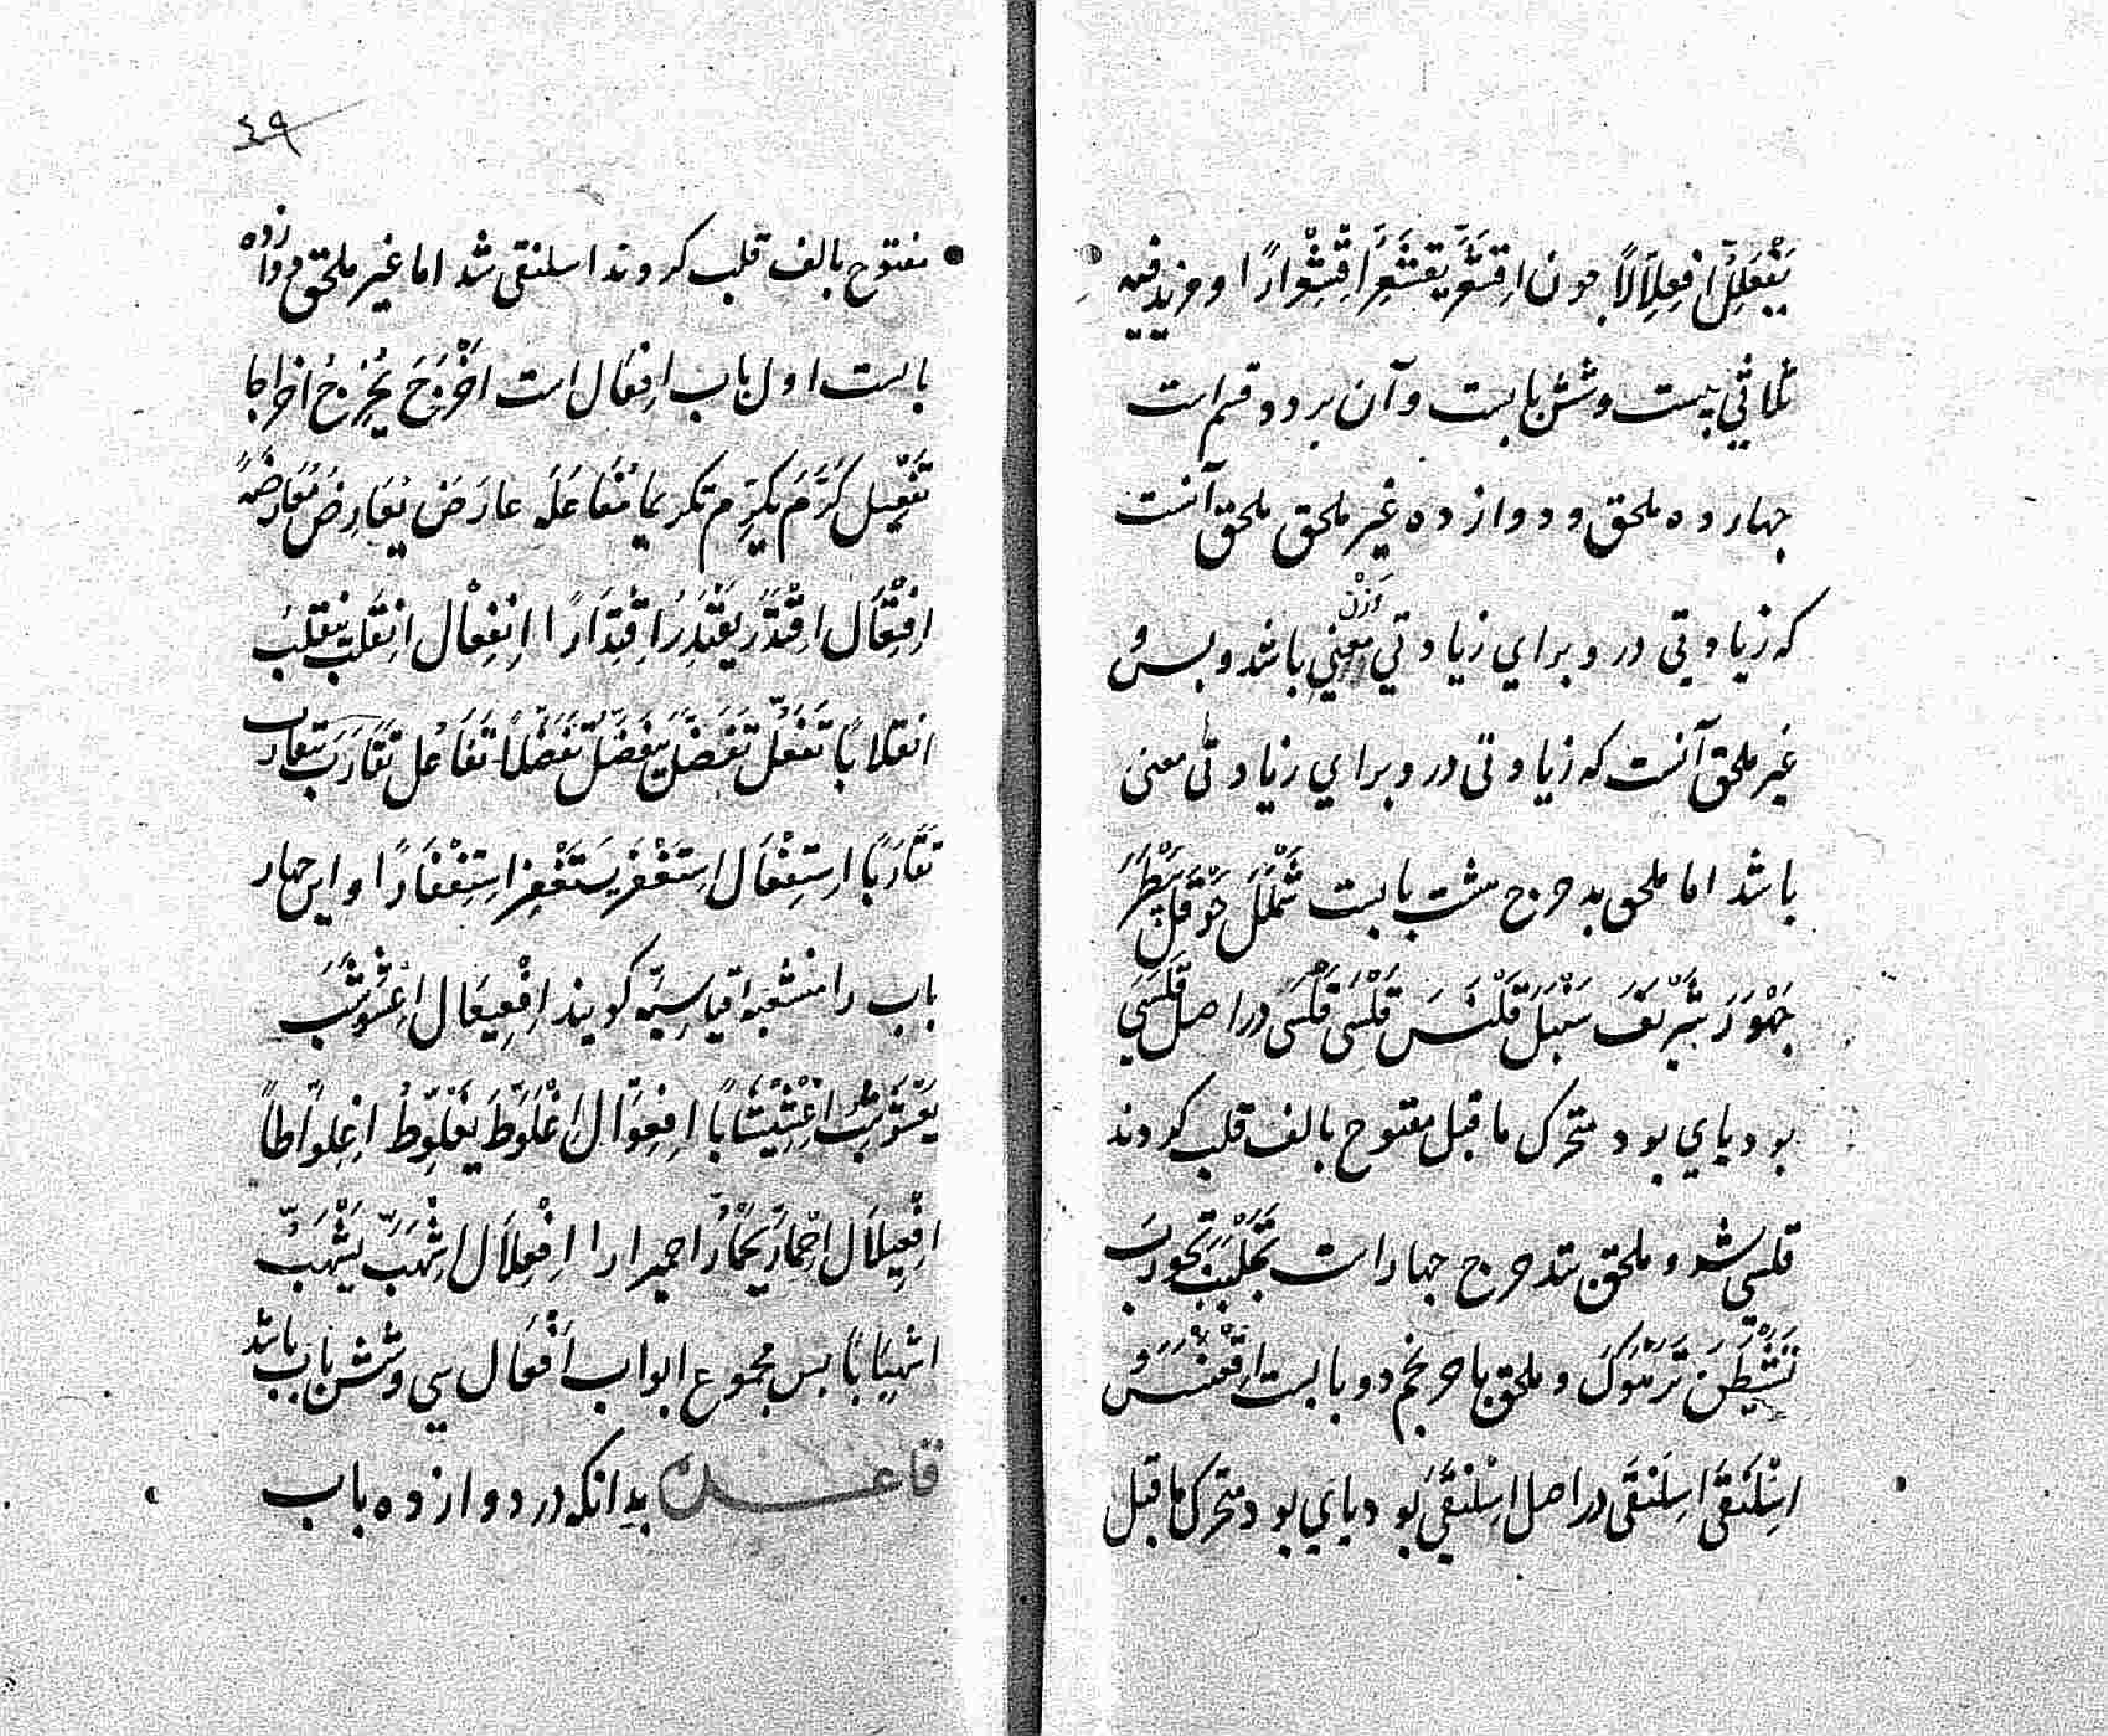 یَفْعَلِلُّ اِفْعِلِلَّالًا چون اِقْشَعَرَّ یَقْشَعِرُّ اِقْشِعْرَارًا و مزید فیه
ثلاثی بیست و شش بابست و آن بر دو قسم است
چهارده ملحق و دوازده غیر ملحق ملحق آنست
که زیادتی درو برای زیادتی وَزْن باشد و بس و
غیر ملحق آنست که زیادتی درو برای زیادتی معنی
باشد اما ملحق بدحرج هشت بابست شَمْلَلَ حَوْقَلَ بَیْطَرَ
جَهْوَرَ شَرْیَفَ سَنْبَلَ قَلْنَسَ قَلْسَی قَلْسَی در اصل قَلْسَیَ
بود یای بود متحرک ماقبل مفتوح بالف قلب کردند
قلسی شد و ملحق بتدحرج چهار است تَجَلْبَبَ تَجَوْرَبَ
تَشَیْطَنَ تَرَهْوَکَ و ملحق باحرنجم دو بابست اِقْعَنْسَسَ و
اِسْلَنْقَی اِسْلَنْقَی در اصل اِسْلَنْقَیَ بود یای بود متحرک ماقبل
٤٩
مفتوح بالف قلب کردند اسلنقی شد اما غیر ملحق دوازده
بابست اول باب اِفْعَال است اَخْرَجَ یُخْرِجُ اخراجا
تَفْعِیل کَرَّمَ یُکَرِّمُ تکریما مُفَاعَلَه عَارَضَ یُعَارِضُ مُعَارَضَةً
اِفْتِعَال اِقْتَدَرَ یَقْتَدِرُ اِقْتِدَارًا اِنْفِعَال اِنْقَلَبَ یَنْقَلِبُ
انقلابًا تَفَعُّل تَفَضَّلَ یَتَفَضَّلُ تَفَضُّلًا تَفَاعُل تَقَارَبَ یتقارب
تَقَارُبًا اِسْتِفْعَال اِسْتَغْفَرَ یَسْتَغْفِرُ اِسْتِغْفَارًا و این چهار
باب را منشعبه قیاسیّه کویند اِفْعِیعَال اِعْشَوْشَبَ
یَعْشَوْشِبُ اِعْشِیْشَابًا اِفْعِوَّال اِعْلَوَّطَ یَعْلَوِّطُ اِعْلِوَّاطًا
اِفْعِیلَال اِحْمَارَّ یَحْمَارُّ احمیرارا اِفْعِلَال اِشْهَبَّ یَشْهَبُّ
اشهبابًا بس مجموع ابواب اَفْعَال سی و شش باب باشد
قاعده بدانکه در دوازده باب